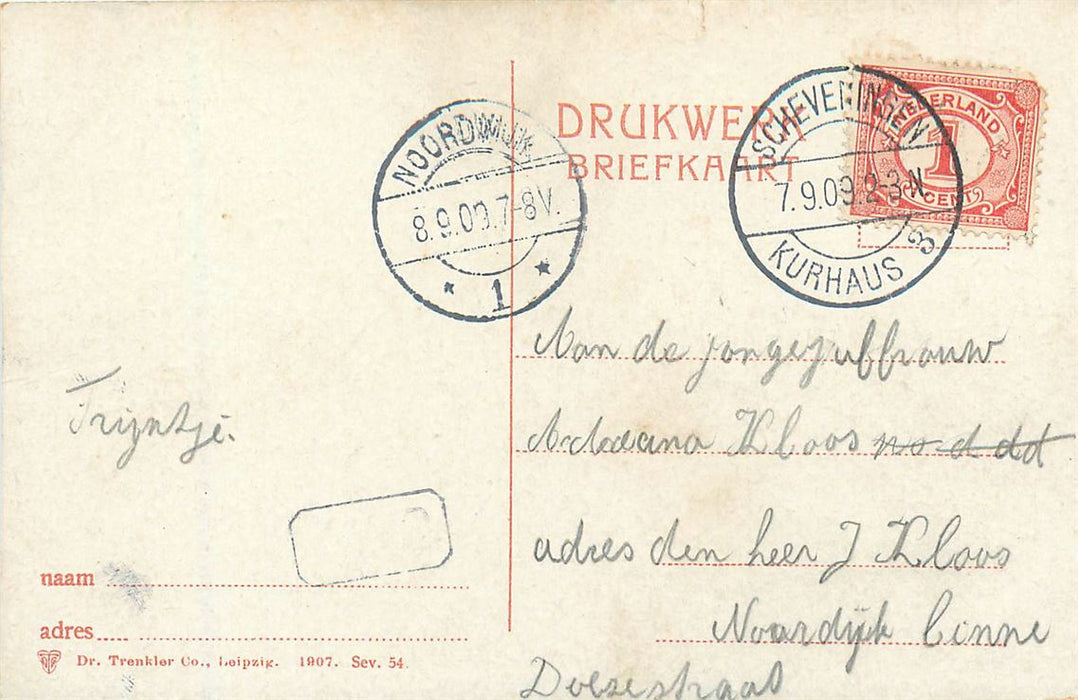 DRUKWERK
BRIEFKAART
NOORDWIJK
8.9.09.7-8V.
* 1 *
SCHEVENINGEN
7.9.09.2-3N.
KURHAUS 3
NEDERLAND
1
CENT
Aan de jongejuffrouw
Kloos
adres den heer J Kloos
Noordijk binne
Trijntje.
naam
adres
Dr. Trenkler Co., Leipzig. 1907. Sev. 54.